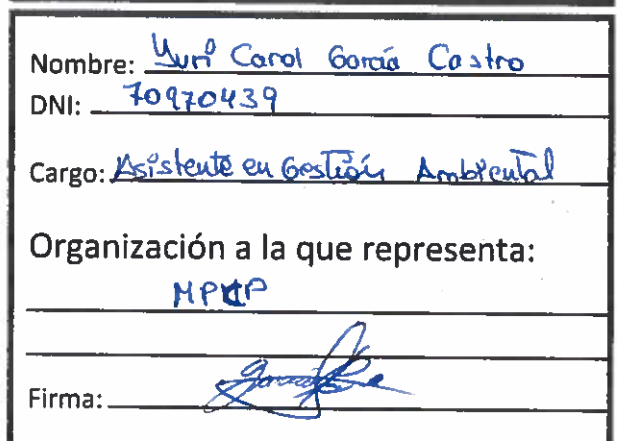 Nombre: Yuri Carol García Castro
DNI: 70970439
Cargo: Asistente en Gestión Ambiental
Organización a la que representa:
Firma: